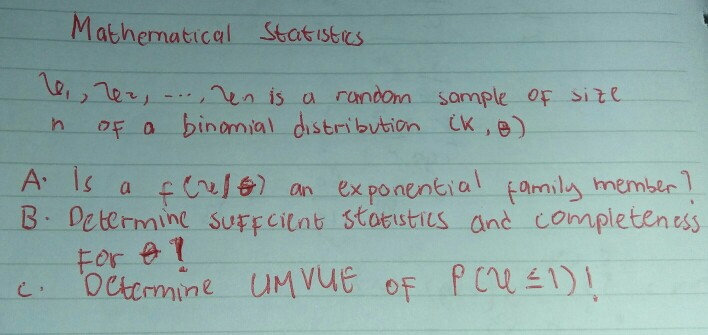 Mathematical Statistics
x₁, x₂, ..., xn is a random sample of size
n of a binomial distribution (k, θ)
A. is a f(x|θ) an exponential family member?
B. Determine suffcient statistics and completeness
for θ!
C. Determine UMVUE of P(x ≤ 1)!